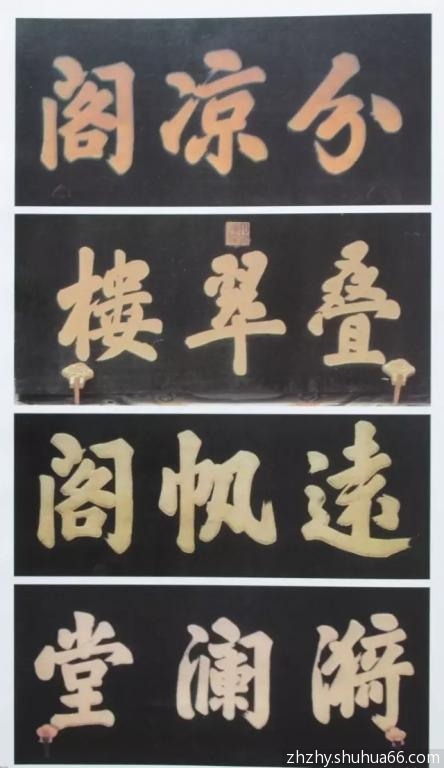 分凉阁
叠翠樓
遠帆阁
漪澜堂
zhzhy.shuhua66.com